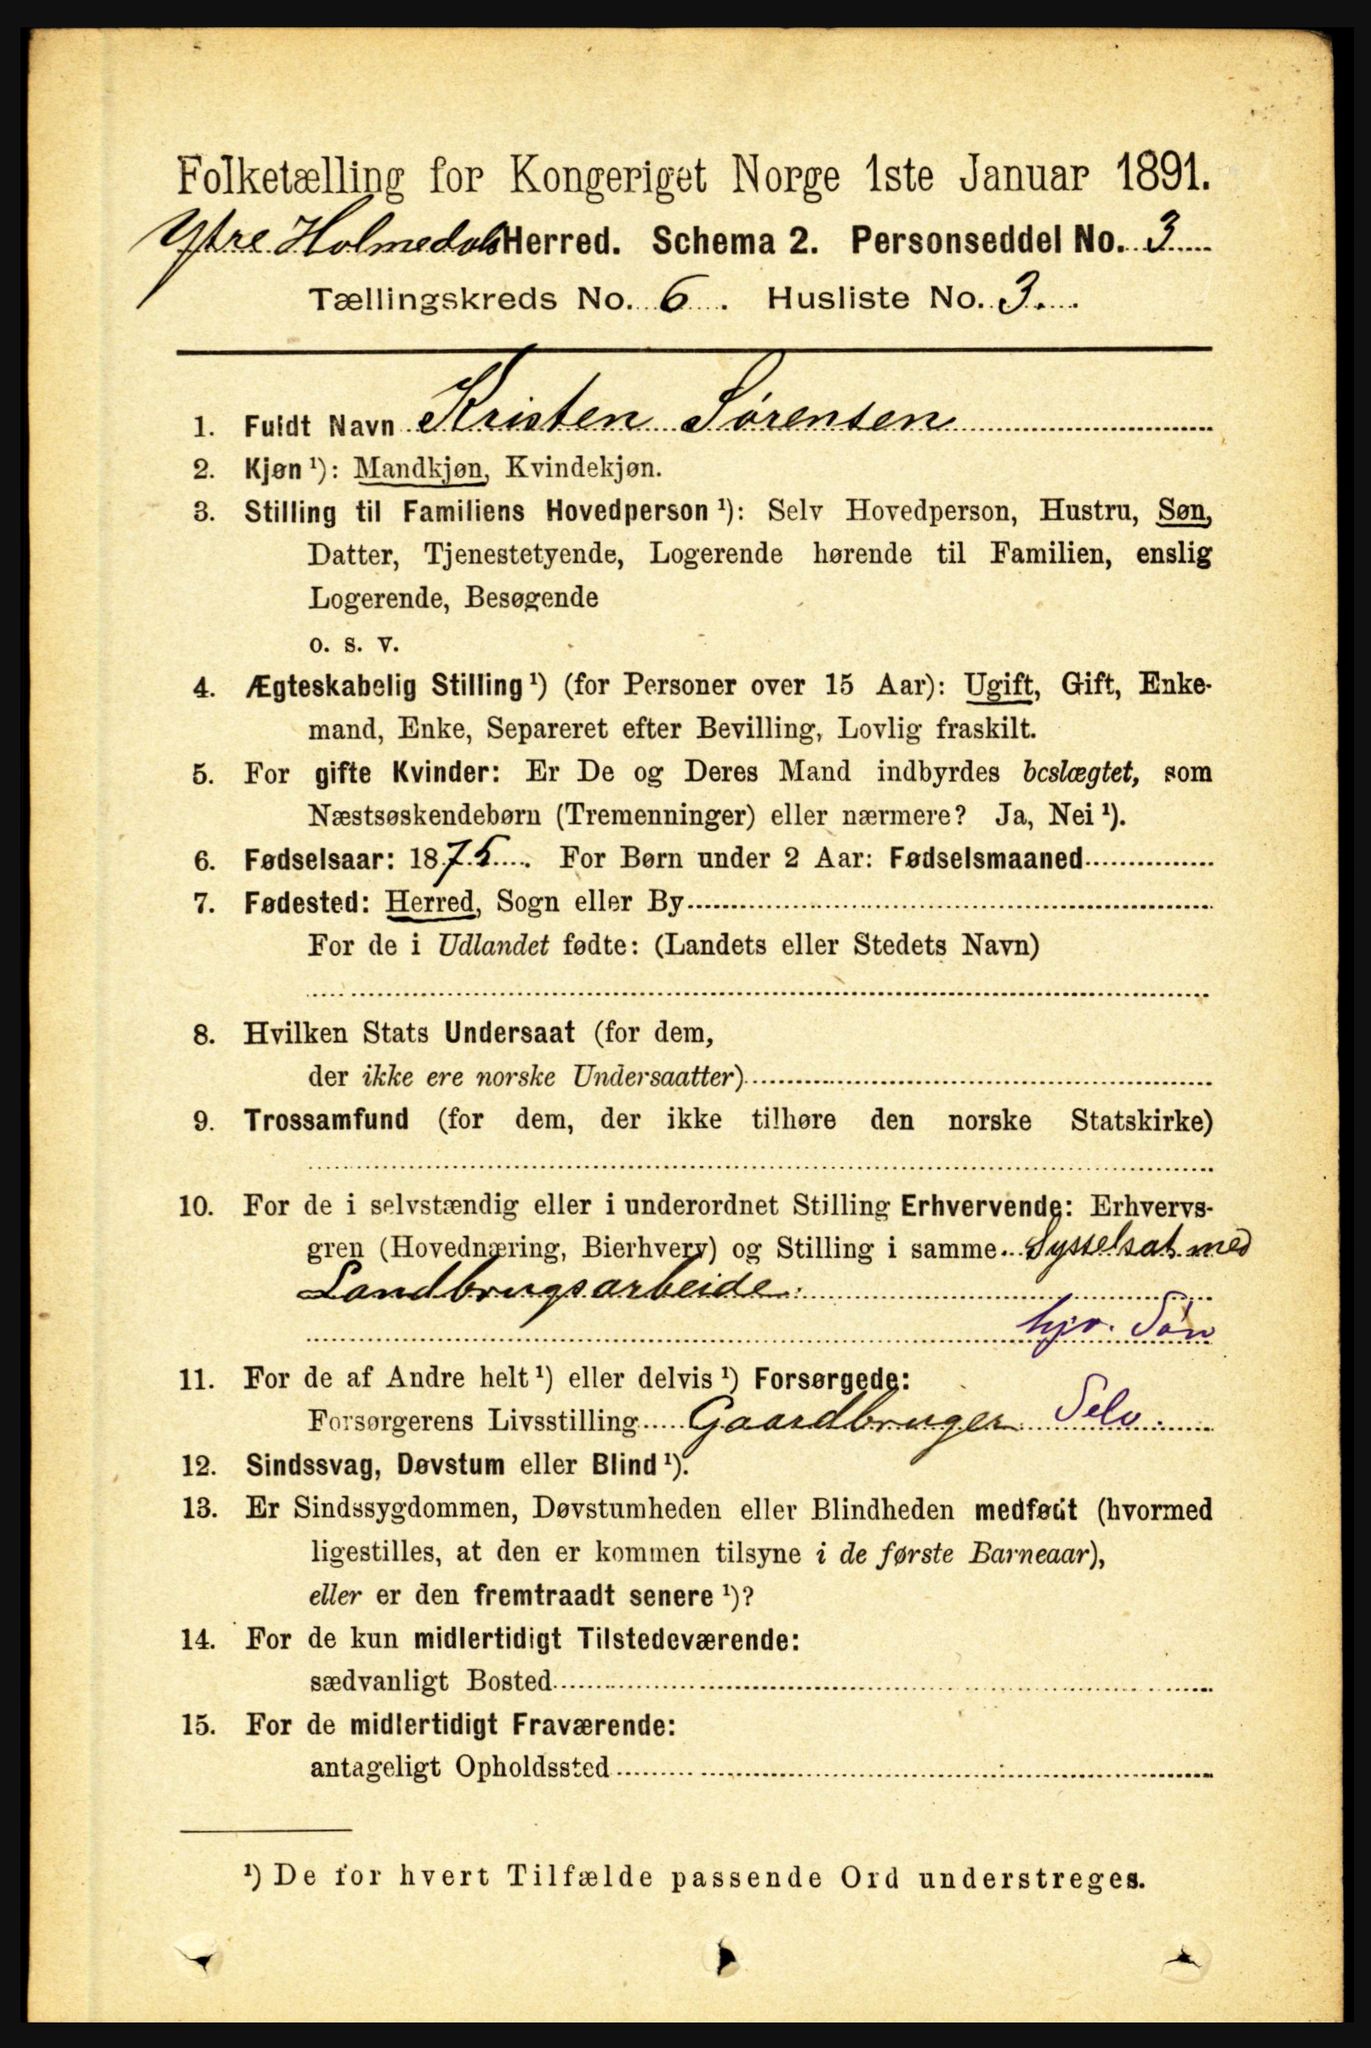 Folketælling for Kongeriget Norge 1ste Januar 1891.
Ytre Holmedals Herred. Schema 2. Personseddel No. 3
Tællingskreds No. 6. Husliste No. 3.
1. Fuldt Navn Kristen Sørensen
2. Kjøn¹): Mandkjøn, Kvindekjøn.
3. Stilling til Familiens Hovedperson¹): Selv Hovedperson, Hustru, Søn,
Datter, Tjenestetyende, Logerende hørende til Familien, enslig
Logerende, Besøgende
o. s. v.
4. Ægteskabelig Stilling¹) (for Personer over 15 Aar): Ugift, Gift, Enke-
mand, Enke, Separeret efter Bevilling, Lovlig fraskilt.
5. For gifte Kvinder: Er De og Deres Mand indbyrdes beslægtet, som
Næstsøskendebørn (Tremenninger) eller nærmere? Ja, Nei¹).
6. Fødselsaar: 1875. For Børn under 2 Aar: Fødselsmaaned
7. Fødested: Herred, Sogn eller By
For de i Udlandet fødte: (Landets eller Stedets Navn)
8. Hvilken Stats Undersaat (for dem,
der ikke ere norske Undersaatter)
9. Trossamfund (for dem, der ikke tilhøre den norske Statskirke)
10. For de i selvstændig eller i underordnet Stilling Erhvervende: Erhvervs-
gren (Hovednæring, Bierhverv) og Stilling i samme Sysselsat med
Landbrugsarbeide.
hjv. Søn
11. For de af Andre helt¹) eller delvis¹) Forsørgede:
Forsørgerens Livsstilling Gaardbruger Selv.
12. Sindssvag, Døvstum eller Blind¹).
13. Er Sindssygdommen, Døvstumheden eller Blindheden medfødt (hvormed
ligestilles, at den er kommen tilsyne i de første Barneaar),
eller er den fremtraadt senere¹)?
14. For de kun midlertidigt Tilstedeværende:
sædvanligt Bosted
15. For de midlertidigt Fraværende:
antageligt Opholdssted
¹) De for hvert Tilfælde passende Ord understreges.